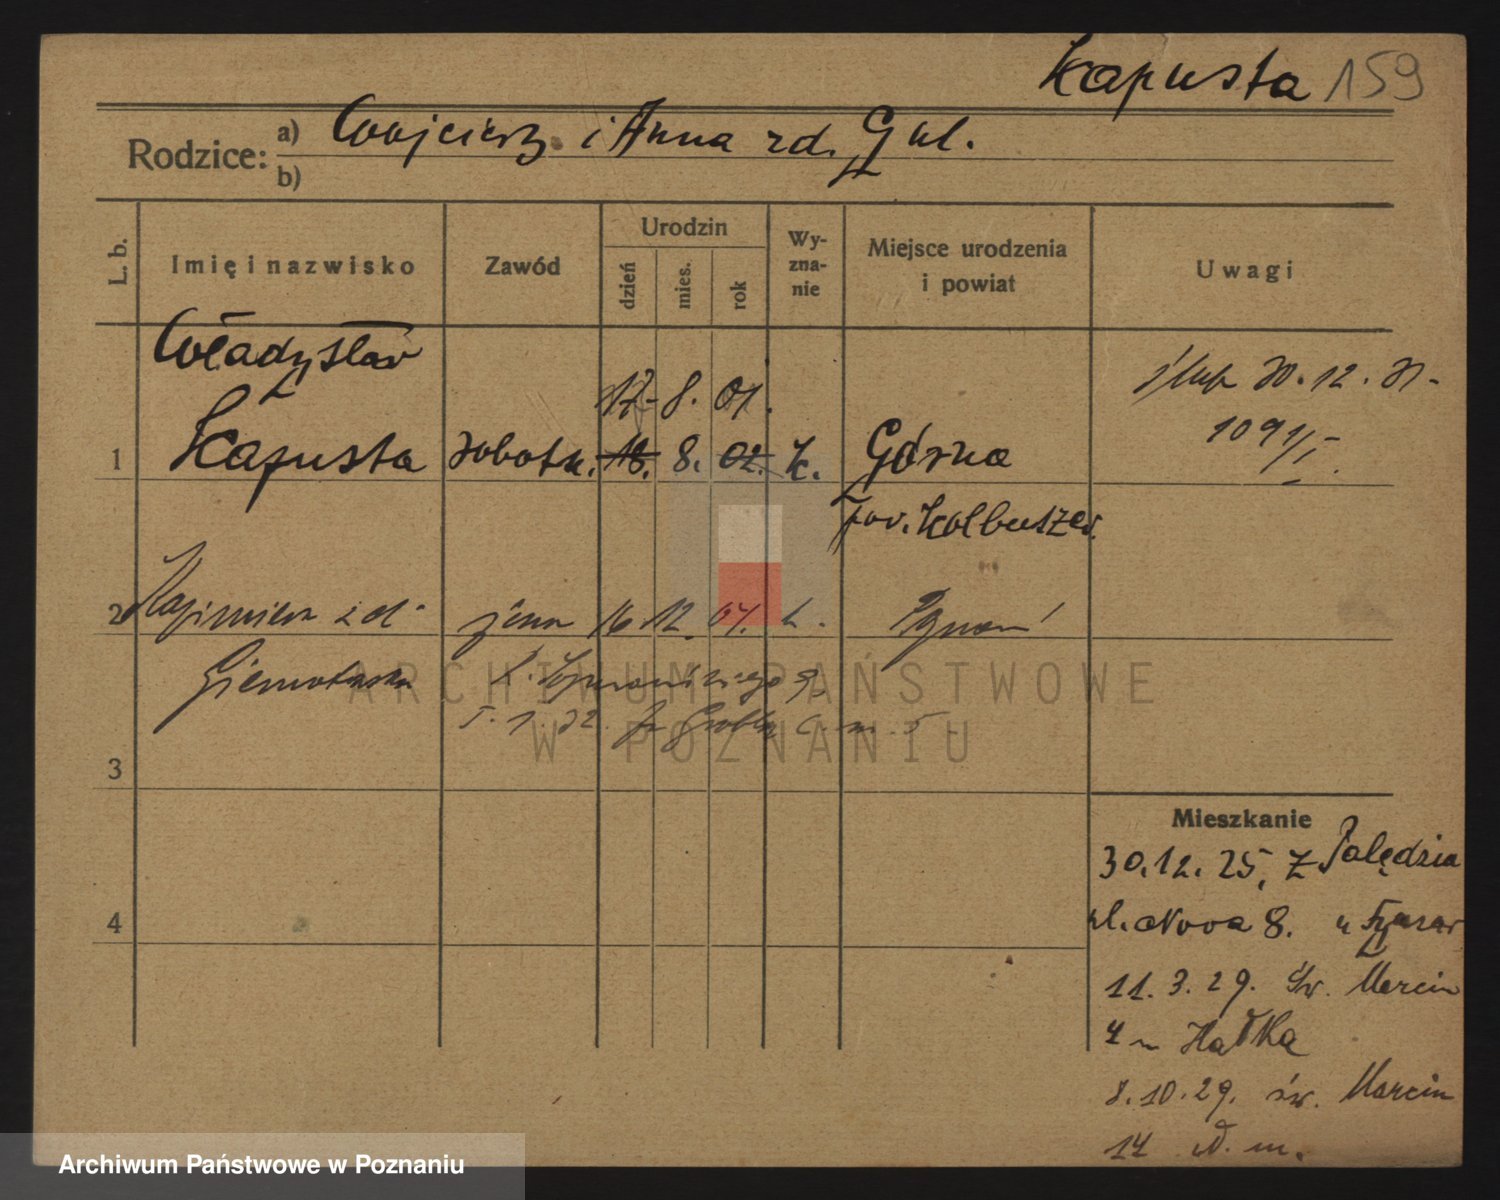 Kapusta 159
Rodzice: a) Wojciech i Anna zd. Gul.
b)
L. b. Imię i nazwisko Zawód Urodzin dzień mies. rok Wyznanie Miejsce urodzenia i powiat Uwagi
Władysław
17. 8. 01.
ślub 30. 12. 31.
1 Kapusta robotn. 18. 8. 02. k. Górna
1091/I
pow. Kolbuszew.
2 Kazimiera zd. żona 16 12. 04. k. Poznań
5. 1. 32. m. 5
3
Mieszkanie
30.12.25, z Palędzia
4
ul. Nowa 8. u
11. 3. 29. Św. Marcin
4 u Hałka
8.10.29. św. Marcin
14 W. m.
ARCHIWUM PAŃSTWOWE
W POZNANIU
Archiwum Państwowe w Poznaniu